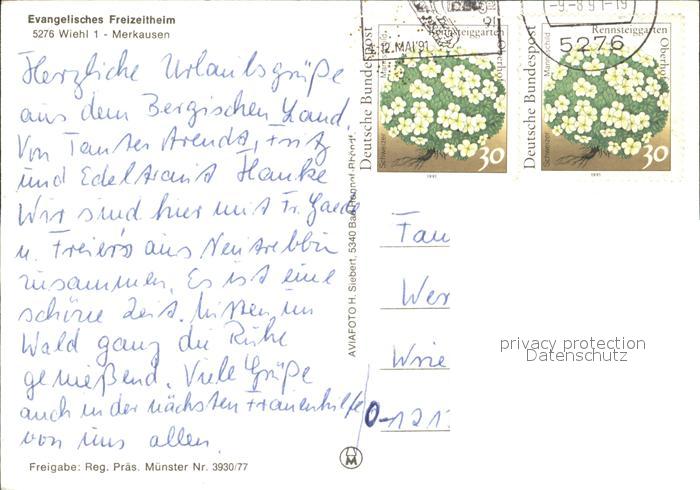 Evangelisches Freizeitheim
5276 Wiehl 1 - Merkausen
Herzliche Urlaubsgrüße
aus dem Bergischen Land.
Von Tanten Arendt, Fritz
und Edeltraut Hanke
Wir sind hier mit Fr.
u. aus
zusammen. Es ist eine
schöne Zeit. Mitten im
Wald ganz die Ruhe
genießend. Viele Grüße
auch in der nächsten Frauenhilfe
von uns allen.
Freigabe: Reg. Präs. Münster Nr. 3930/77
AVIAFOTO H. Siebert, 5340 Bad Honnef-Rhöndf.
Deutsche Bundespost
Rennsteiggarten
Oberhof
Schweizer
Mannsschild
30
1991
12. MAI 91
Deutsche Bundespost
Rennsteiggarten
Oberhof
Schweizer
Mannsschild
30
1991
-9.-8.91-19
5276
Tau
Wer
Wrie
O-121
privacy protection
Datenschutz